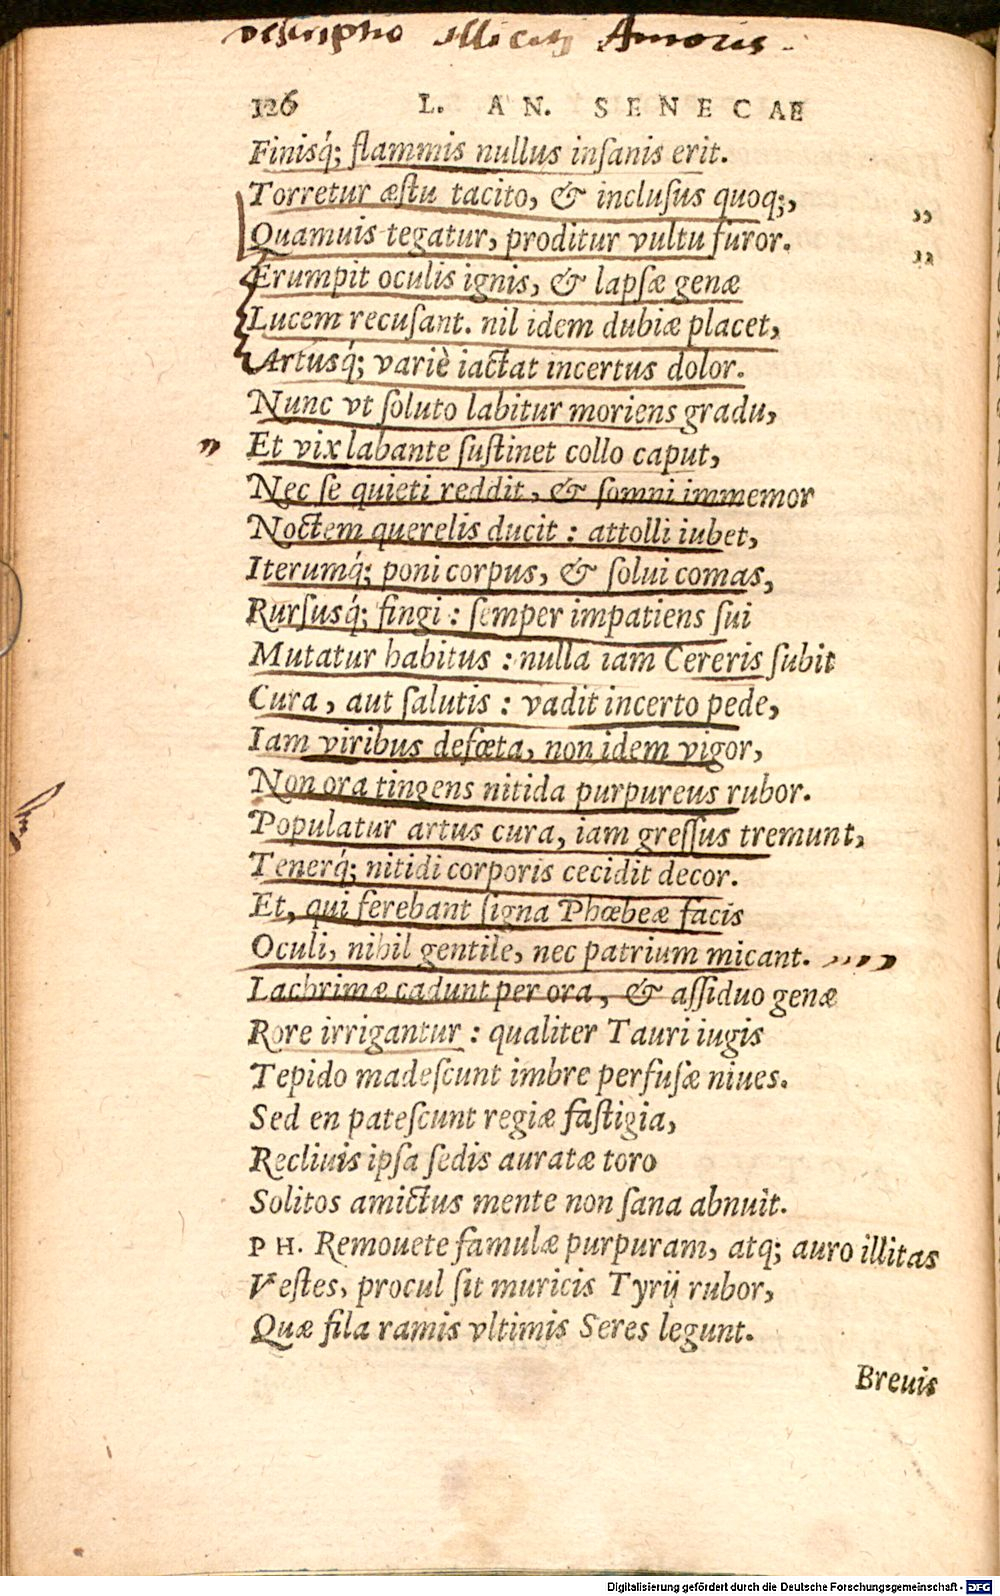 descriptio illiciti Amoris.
126 L. AN. SENECAE
Finisq́; flammis nullus inſanis erit.
Torretur æſtu tacito, & incluſus quoq;,
Quamuis tegatur, proditur vultu furor.
Erumpit oculis ignis, & lapſæ genæ
Lucem recuſant. nil idem dubiæ placet,
Artusq́; variè iactat incertus dolor.
Nunc vt ſoluto labitur moriens gradu,
Et vix labante ſuſtinet collo caput,
Nec ſe quieti reddit, & ſomni immemor
Noctem querelis ducit : attolli iubet,
Iterumq́; poni corpus, & ſolui comas,
Rurſusq́; fingi : ſemper impatiens ſui
Mutatur habitus : nulla iam Cereris ſubit
Cura, aut ſalutis : vadit incerto pede,
Iam viribus defœta, non idem vigor,
Non ora tingens nitida purpureus rubor.
Populatur artus cura, iam greſſus tremunt,
Tenerq́; nitidi corporis cecidit decor.
Et, qui ferebant ſigna Phœbeæ facis
Oculi, nihil gentile, nec patrium micant.
Lachrimæ cadunt per ora, & aſſiduo genæ
Rore irrigantur : qualiter Tauri iugis
Tepido madeſcunt imbre perfuſæ niues.
Sed en pateſcunt regiæ faſtigia,
Recliuis ipſa ſedis auratæ toro
Solitos amictus mente non ſana abnuit.
PH. Remouete famulæ purpuram, atq; auro illitas
Veſtes, procul ſit muricis Tyrij rubor,
Quæ fila ramis vltimis Seres legunt.
Breuis
Digitalisierung gefördert durch die Deutsche Forschungsgemeinschaft - DFG